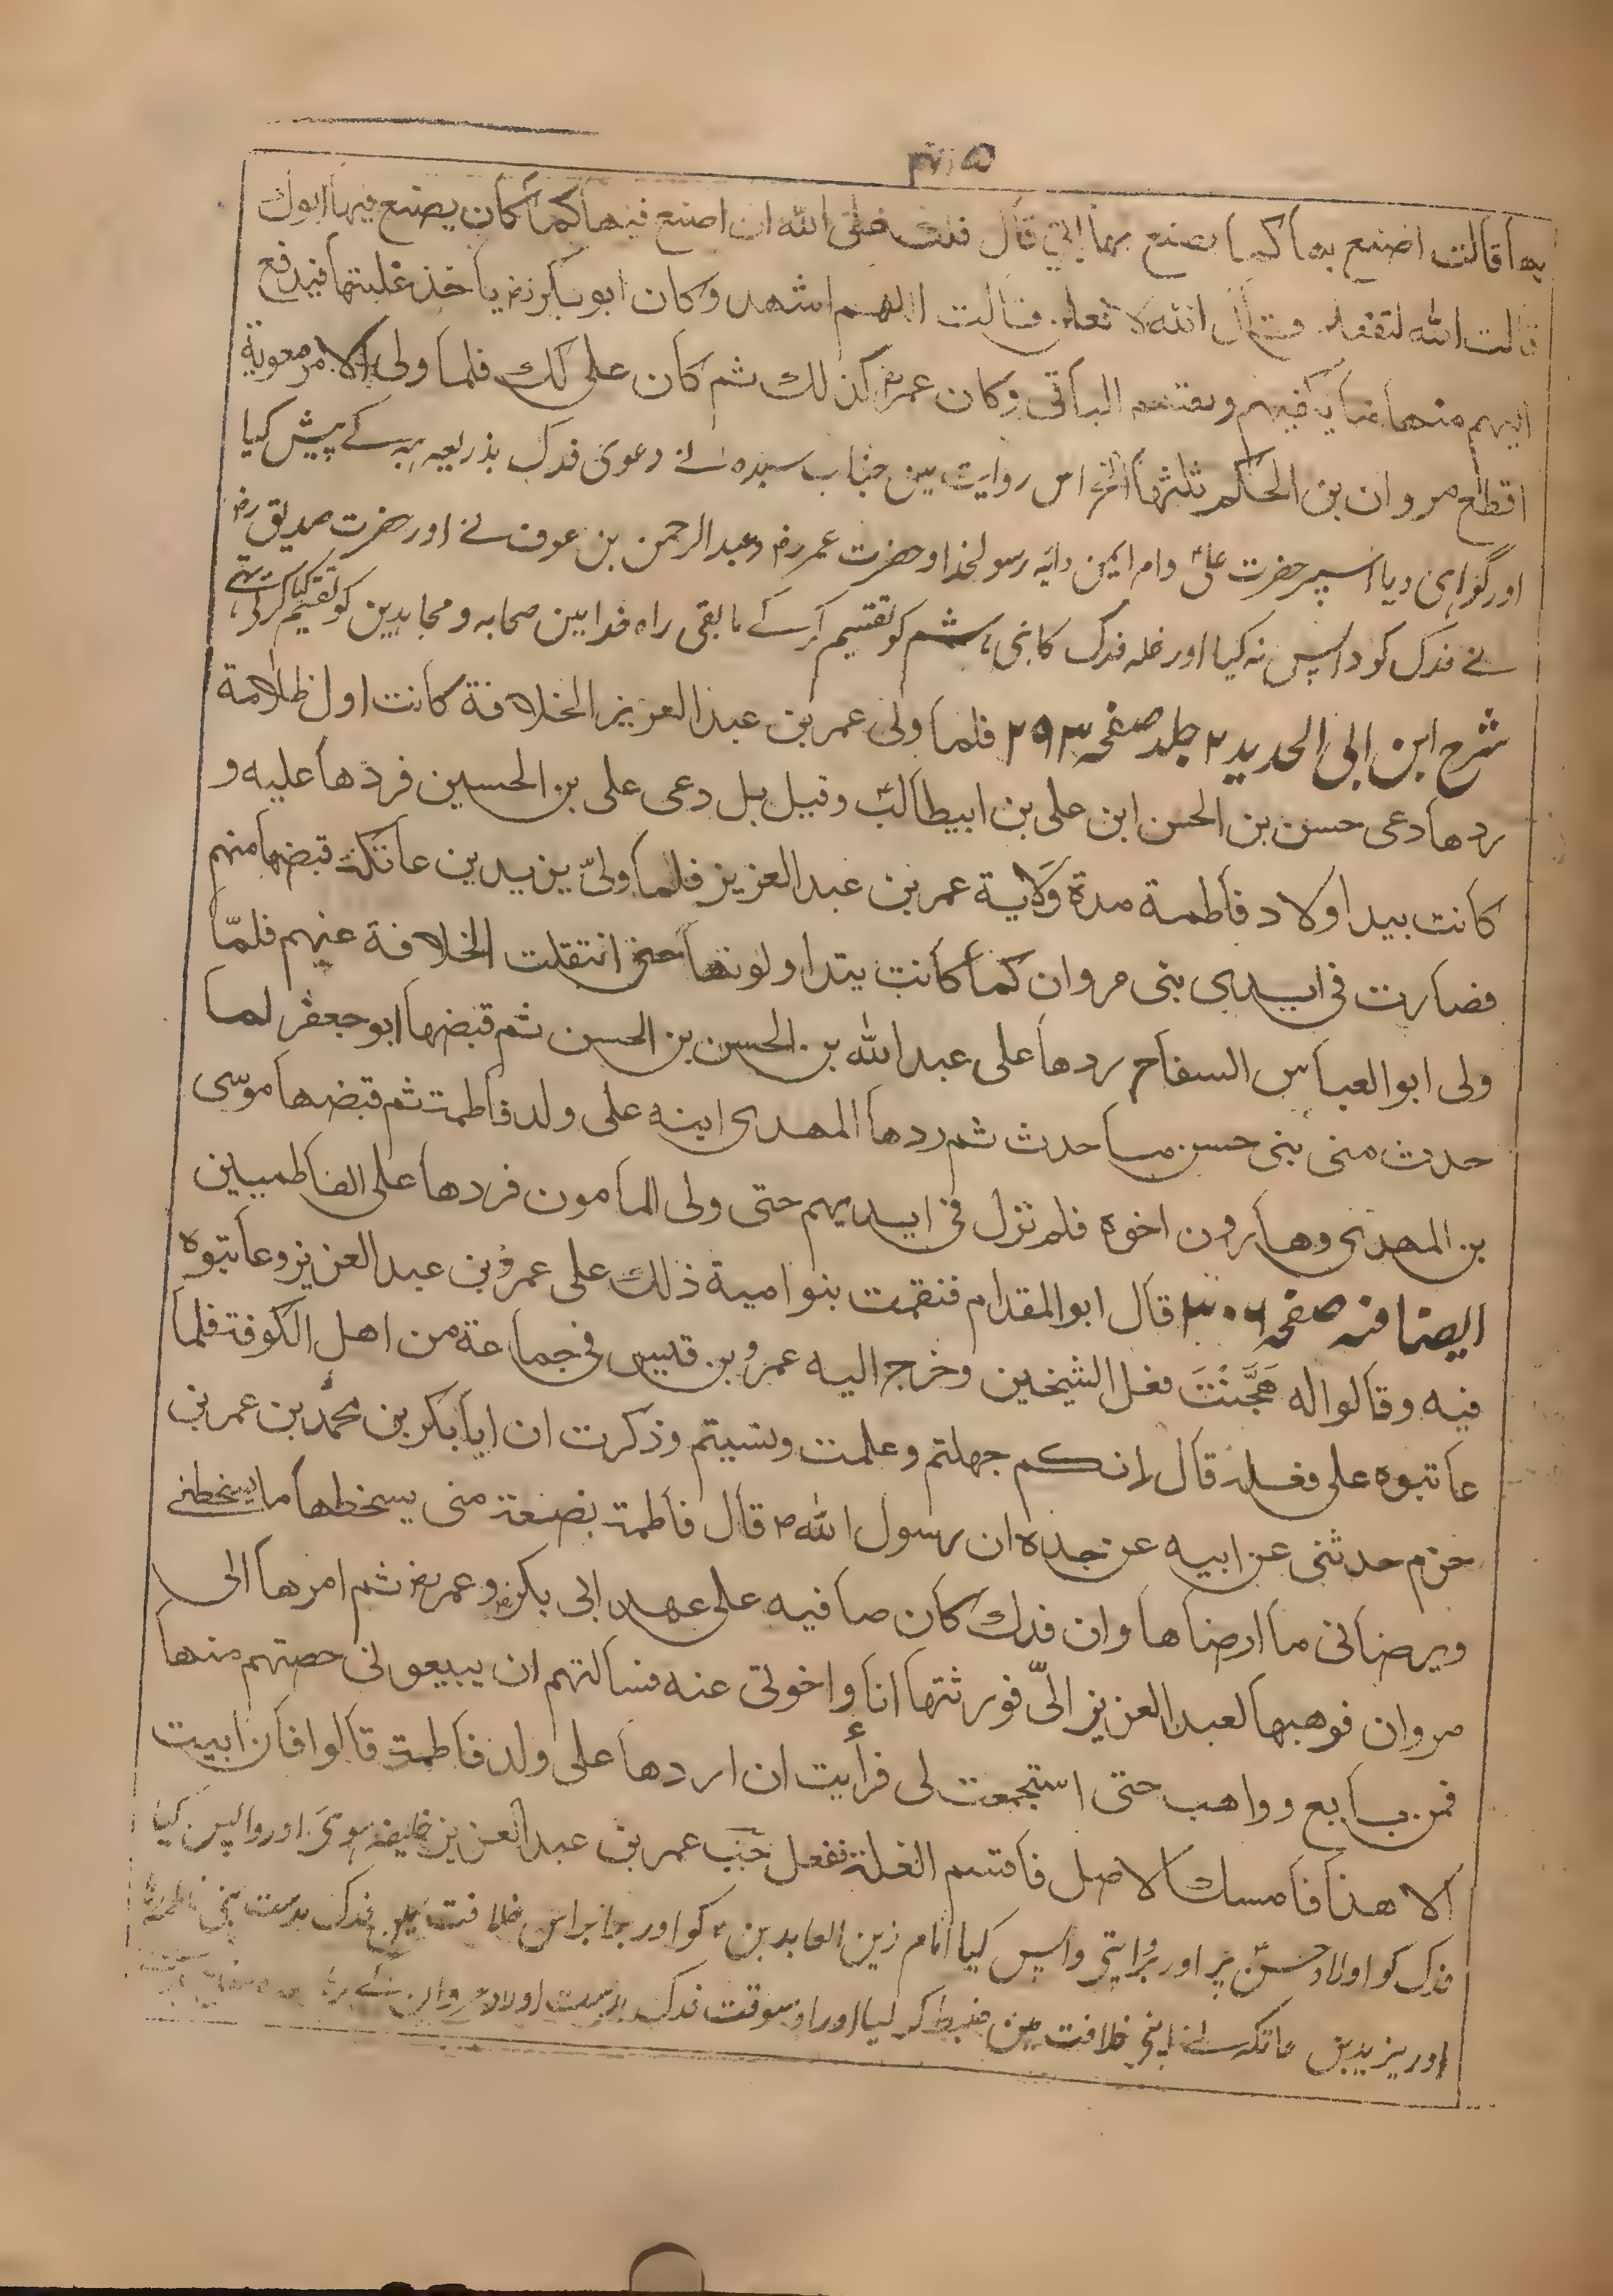 بها قالت اصنع بها كما يصنع بها ابي قال فلك على الله ان اصنع فيها كما كان يصنع فيها ابوك
قالت الله لتفعلن فقال الله لا فعلن قالت اللهم اشهد وكان ابو بكر رض ياخذ غلتها فيدفع
اليهم منها ما يكفيهم ويقسم الباقى وكان عمر رض كذلك ثم كان على كذلك فلما ولى الامر معوية
اقطع مروان بن الحكم ثلثها الخ اس روایت میں جناب سیدہ نے دعوی فدک بذریعہ ہبہ کے پیش کیا
اور گواہی دیا اسپر حضرت علیؑ وام ایمن دایہ رسولخدا و حضرت عمر رض وعبد الرحمن بن عوف نے اور حضرت صدیق رض
نے فدک کو واپس نہ کیا اور غلہ فدک کا بنی ہاشم کو تقسیم کر کے مابقی راہ خدا میں صحابہ و مجاہدین کو تقسیم کیا کرتے تھے
شرح ابن ابی الحدید ۲ جلد صفحہ ۲۹۳ فلما ولى عمر بن عبد العزيز الخلافة كانت اول ظلامة
ردها دعى حسن بن الحسن ابن على بن ابيطالبؑ وقيل بل دعى على بن الحسين فردها عليه و
كانت بيد اولاد فاطمة مدة ولاية عمر بن عبد العزيز فلما ولىّ يزيد بن عاتكة قبضها منهم
فصارت فى ايدى بنى مروان كما كانت يتداولونها حتى انتقلت الخلافة عنهم فلمّا
ولى ابو العباس السفاح ردها على عبد الله بن الحسن بن الحسن ثم قبضها ابو جعفر لما
حدث منى بنى حسن ما حدث ثم ردها المهدى ابنه على ولد فاطمة ثم قبضها موسى
بن المهدى وهارون اخوه فلم تزل فى ايديهم حتى ولى المامون فردها على الفاطميين
ایضا فنہ صفحہ ۳۰۶ قال ابو المقدام فنقمت بنو امية ذلك على عمر بن عبد العزيز وعاتبوه
فيه وقالوا له هَجَّنْتَ فعل الشيخين وخرج اليه عمرو بن قيس فى جماعة من اهل الكوفة فلما
عاتبوه على فعله قال انكم جهلتم وعلمت ونسيتم وذكرت ان ابا بكر بن محمّد بن عمر بن
حزم حدثنى عن ابيه عن جده ان رسول الله ص قال فاطمة بضعة منى يسخطها ما يسخطنى
ويرضانى ما ارضاها وان فدك كان صافيه على عهد ابى بكر رض وعمر رض ثم امرها الى
مروان فوهبها لعبد العزيز الىّ فورثتها انا واخوتى عنه فسالتهم ان يبيعونى حصتهم منها
فمن بايع وواهب حتى استجمعت لى فرأيت ان اردها على ولد فاطمة قالوا فان ابيت
الا هذا فامسك الاصل فاقتسم الغلة ففعل جب عمر بن عبد العزيز خلیفہ ہوئے اور واپس کیا
فدک کو اولاد حسنؑ پر اور بروایتی واپس کیا امام زین العابدینؑ کو اور برابر اس خلافت میں فدک بدست بنی فاطمہؑ
اور یزید بن عاتکہ نے اپنی خلافت میں ضبط کر لیا اور اوسوقت فدک بدست اولاد مروان کے